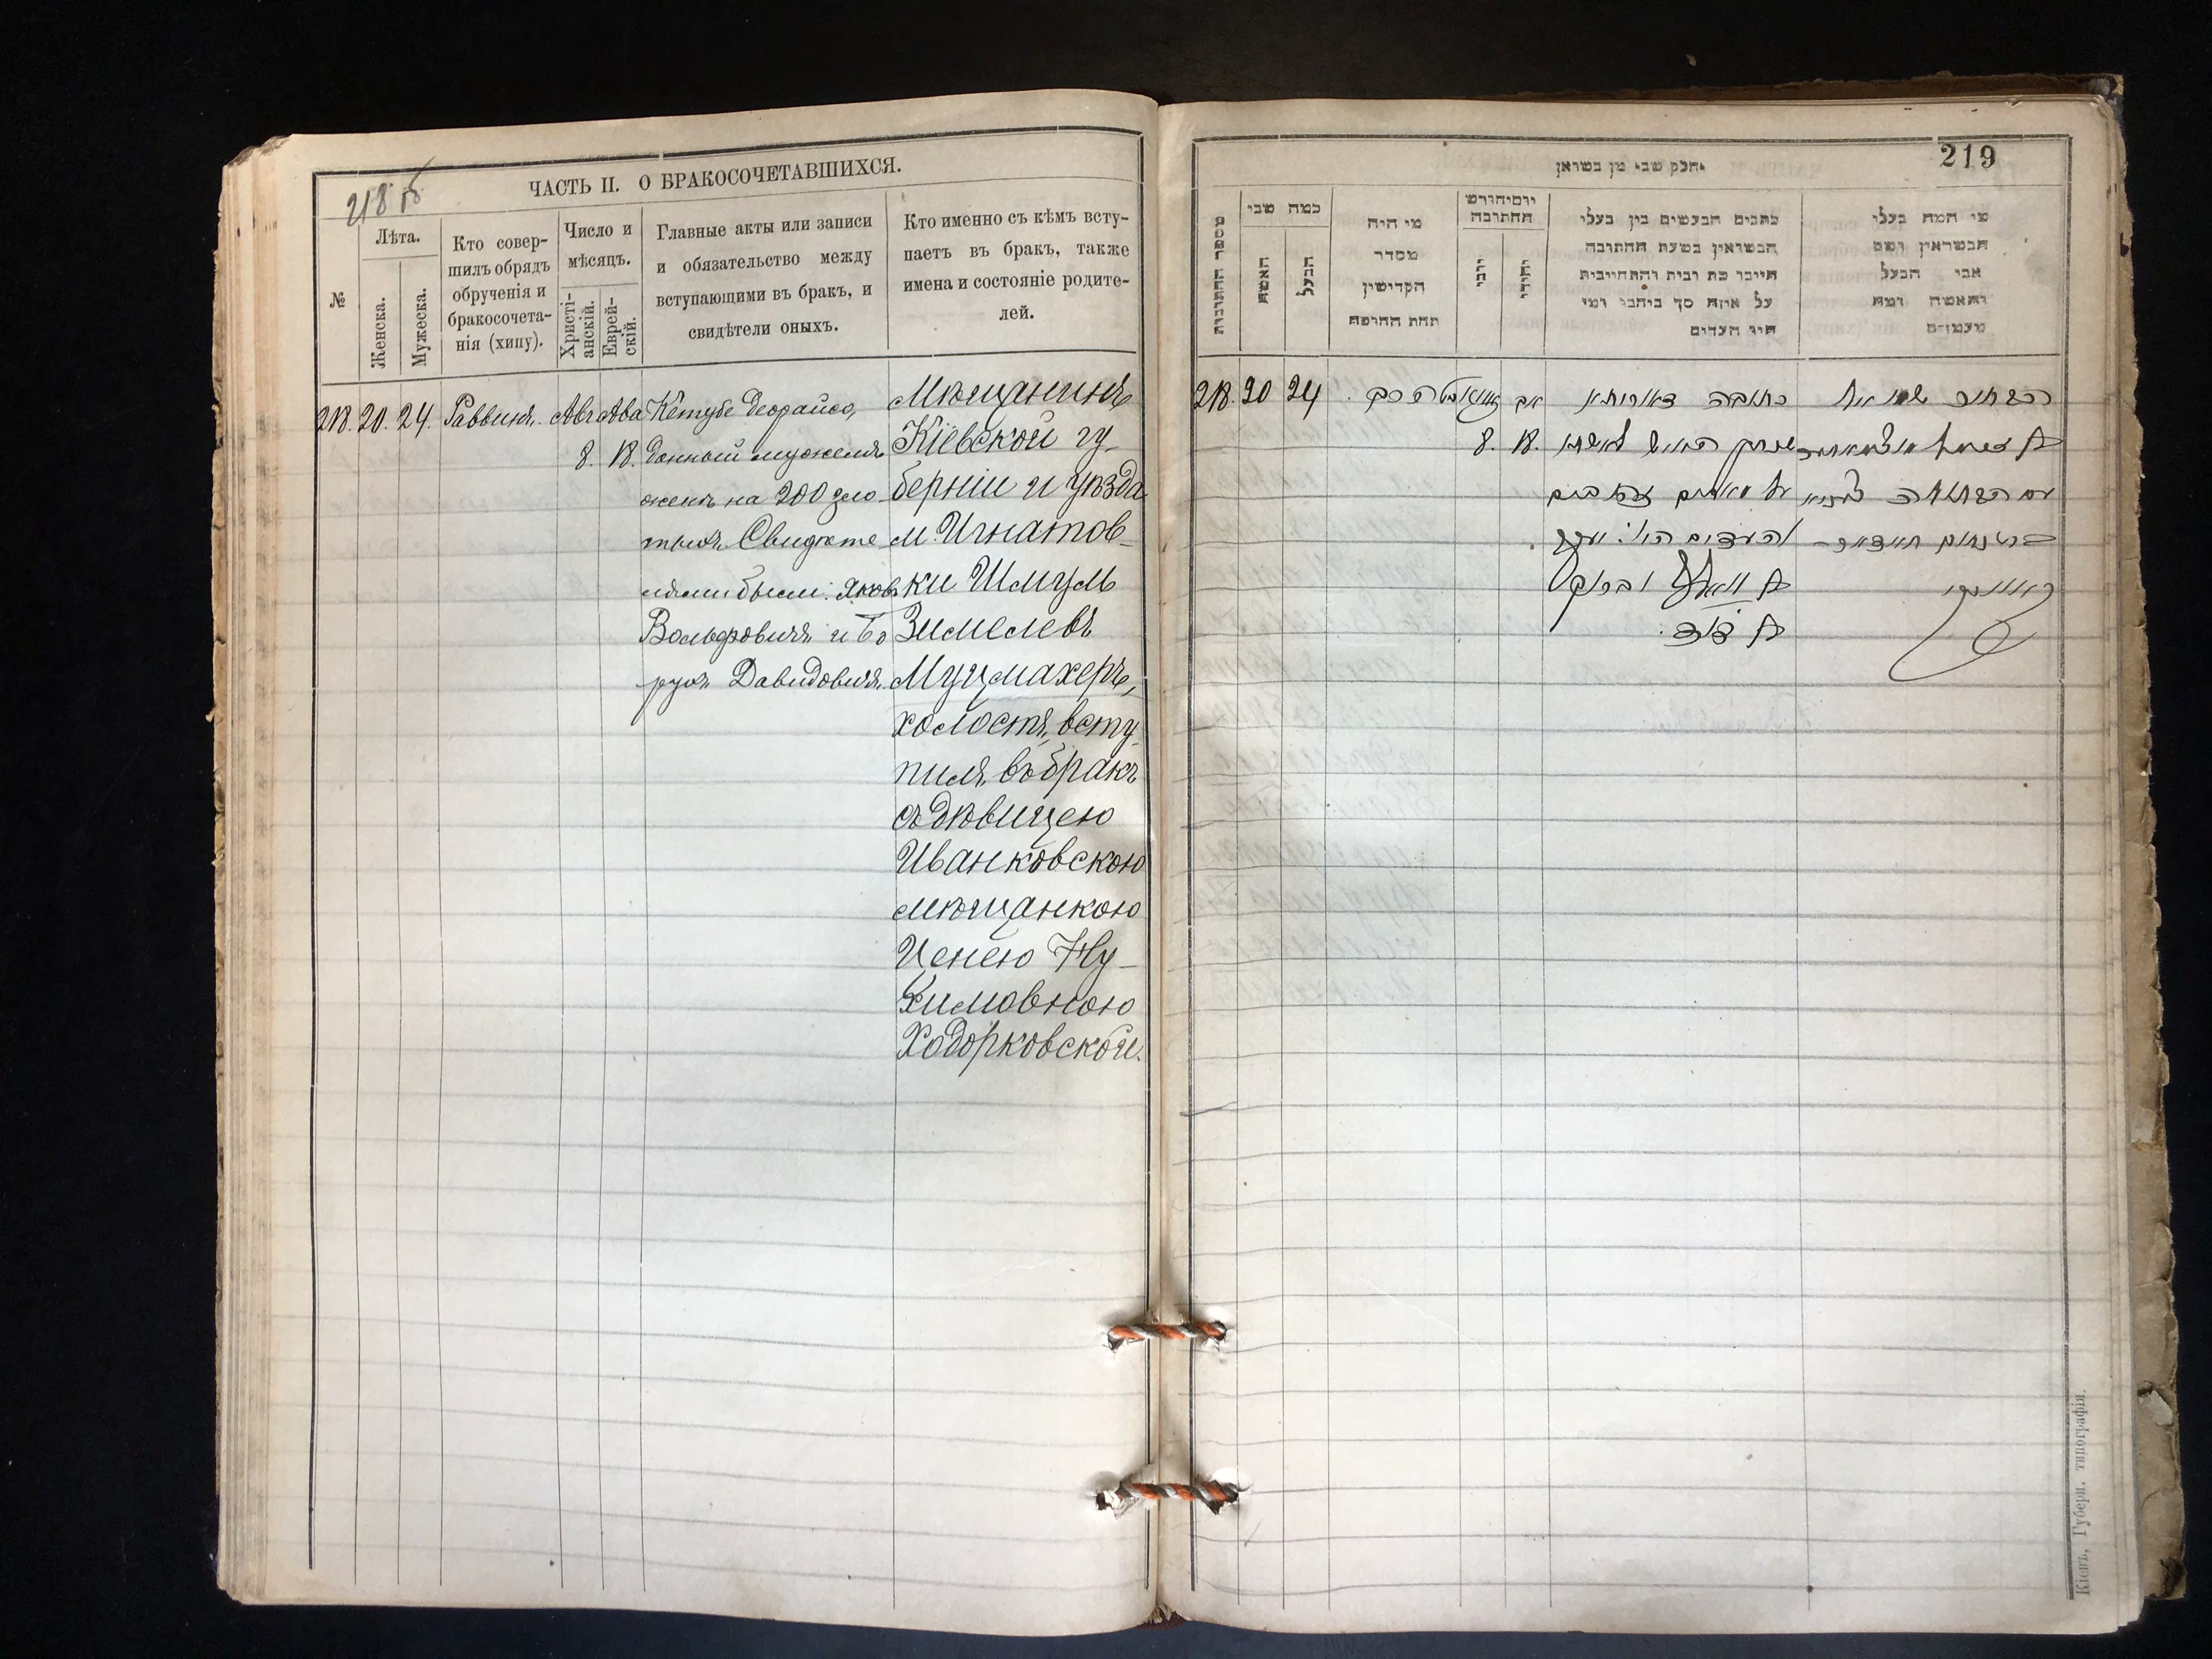 218 об
ЧАСТЬ II. О БРАКОСОЧЕТАВШИХСЯ.
№
Лѣта.
Женска.
Мужеска.
Кто совер-
шилъ обрядъ
обрученія и
бракосочета-
нія (хипу).
Число и
мѣсяцъ.
Христі-
анскій.
Еврей-
скій.
Главные акты или записи
и обязательство между
вступающими въ бракъ, и
свидѣтели оныхъ.
Кто именно съ кѣмъ всту-
паетъ въ бракъ, также
имена и состояніе родите-
лей.
218. 20. 24. Раввинъ. Авг 8. Ава 18.
Кетубе Деорайсо,
данный мужемъ
женѣ на 200 зло-
тыхъ. Свидѣте
лями были: Яковъ
Вольфовичъ и Бо
рухъ Давидовичъ.
Мѣщанинъ
Кіевской гу-
берніи и уѣзда
м. Игнатов-
ки Шмуль
Зимелевъ
Муцмахеръ,
холостъ, всту
пилъ въ бракъ
съ дѣвицею
Иванковскою
мѣщанкою
Ценею Ну-
химовною
Ходорковской.
219
חלק שני מן בשואין
מספר החתונות
כמה שני
האשה
הבעל
מי היה
מסדר
הקדישין
תחת החופה
יום וחודש
החתונה
נוצרי
יהודי
כתבים הנעשים בין בעלי
הנשואין בשעת החתונה
חיובי כת ובית והתחייבות
על איזה סך ביחבו ומי
היו העדים
מי המה בעלי
הנשואין ושם
אבי הבעל
והאשה ומה
מעמדם
218. 20 24 הרב . אוגוסט 8. אב 18.
כתובה דאורייתא
על מאתים זהובים
והעדים היו: יעקב
בן וואלף וברוך
בן דוד.
הבחור שמואל
Кіевъ, Губерн. типографія.